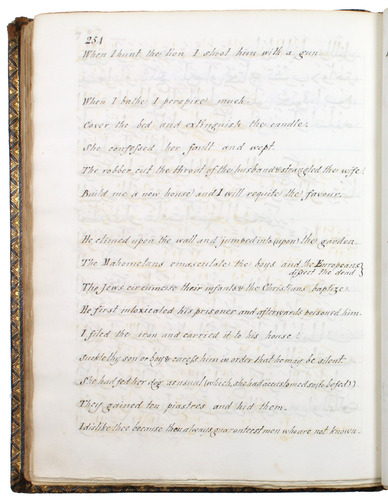 254
When I hunt the lion I shoot him with a gun.
When I bathe I perspire much.
Cover the bed and extinguish the candle.
She confessed her fault and wept.
The robber cut the throat of the husband & straggled the wife.
Build me a new house and I will requite the favour.
He climed upon the wall and jumped into (upon) the garden.
The Mahometans emasculate the boys and the Europeans
disect the dead }
The Jews circumcise their infants & the Christians baptize.
He first intoxicated his prisoner and afterwards poisoned him.
I filed the iron and carried it to his house.
Suckle thy son or boy & caress him in order that he may be silent.
She had fed her dog as usual (which she had accustomed to be fed)
They gained ten piastres and hid them.
I dislike thee because thou always guaranteest men who are not known.